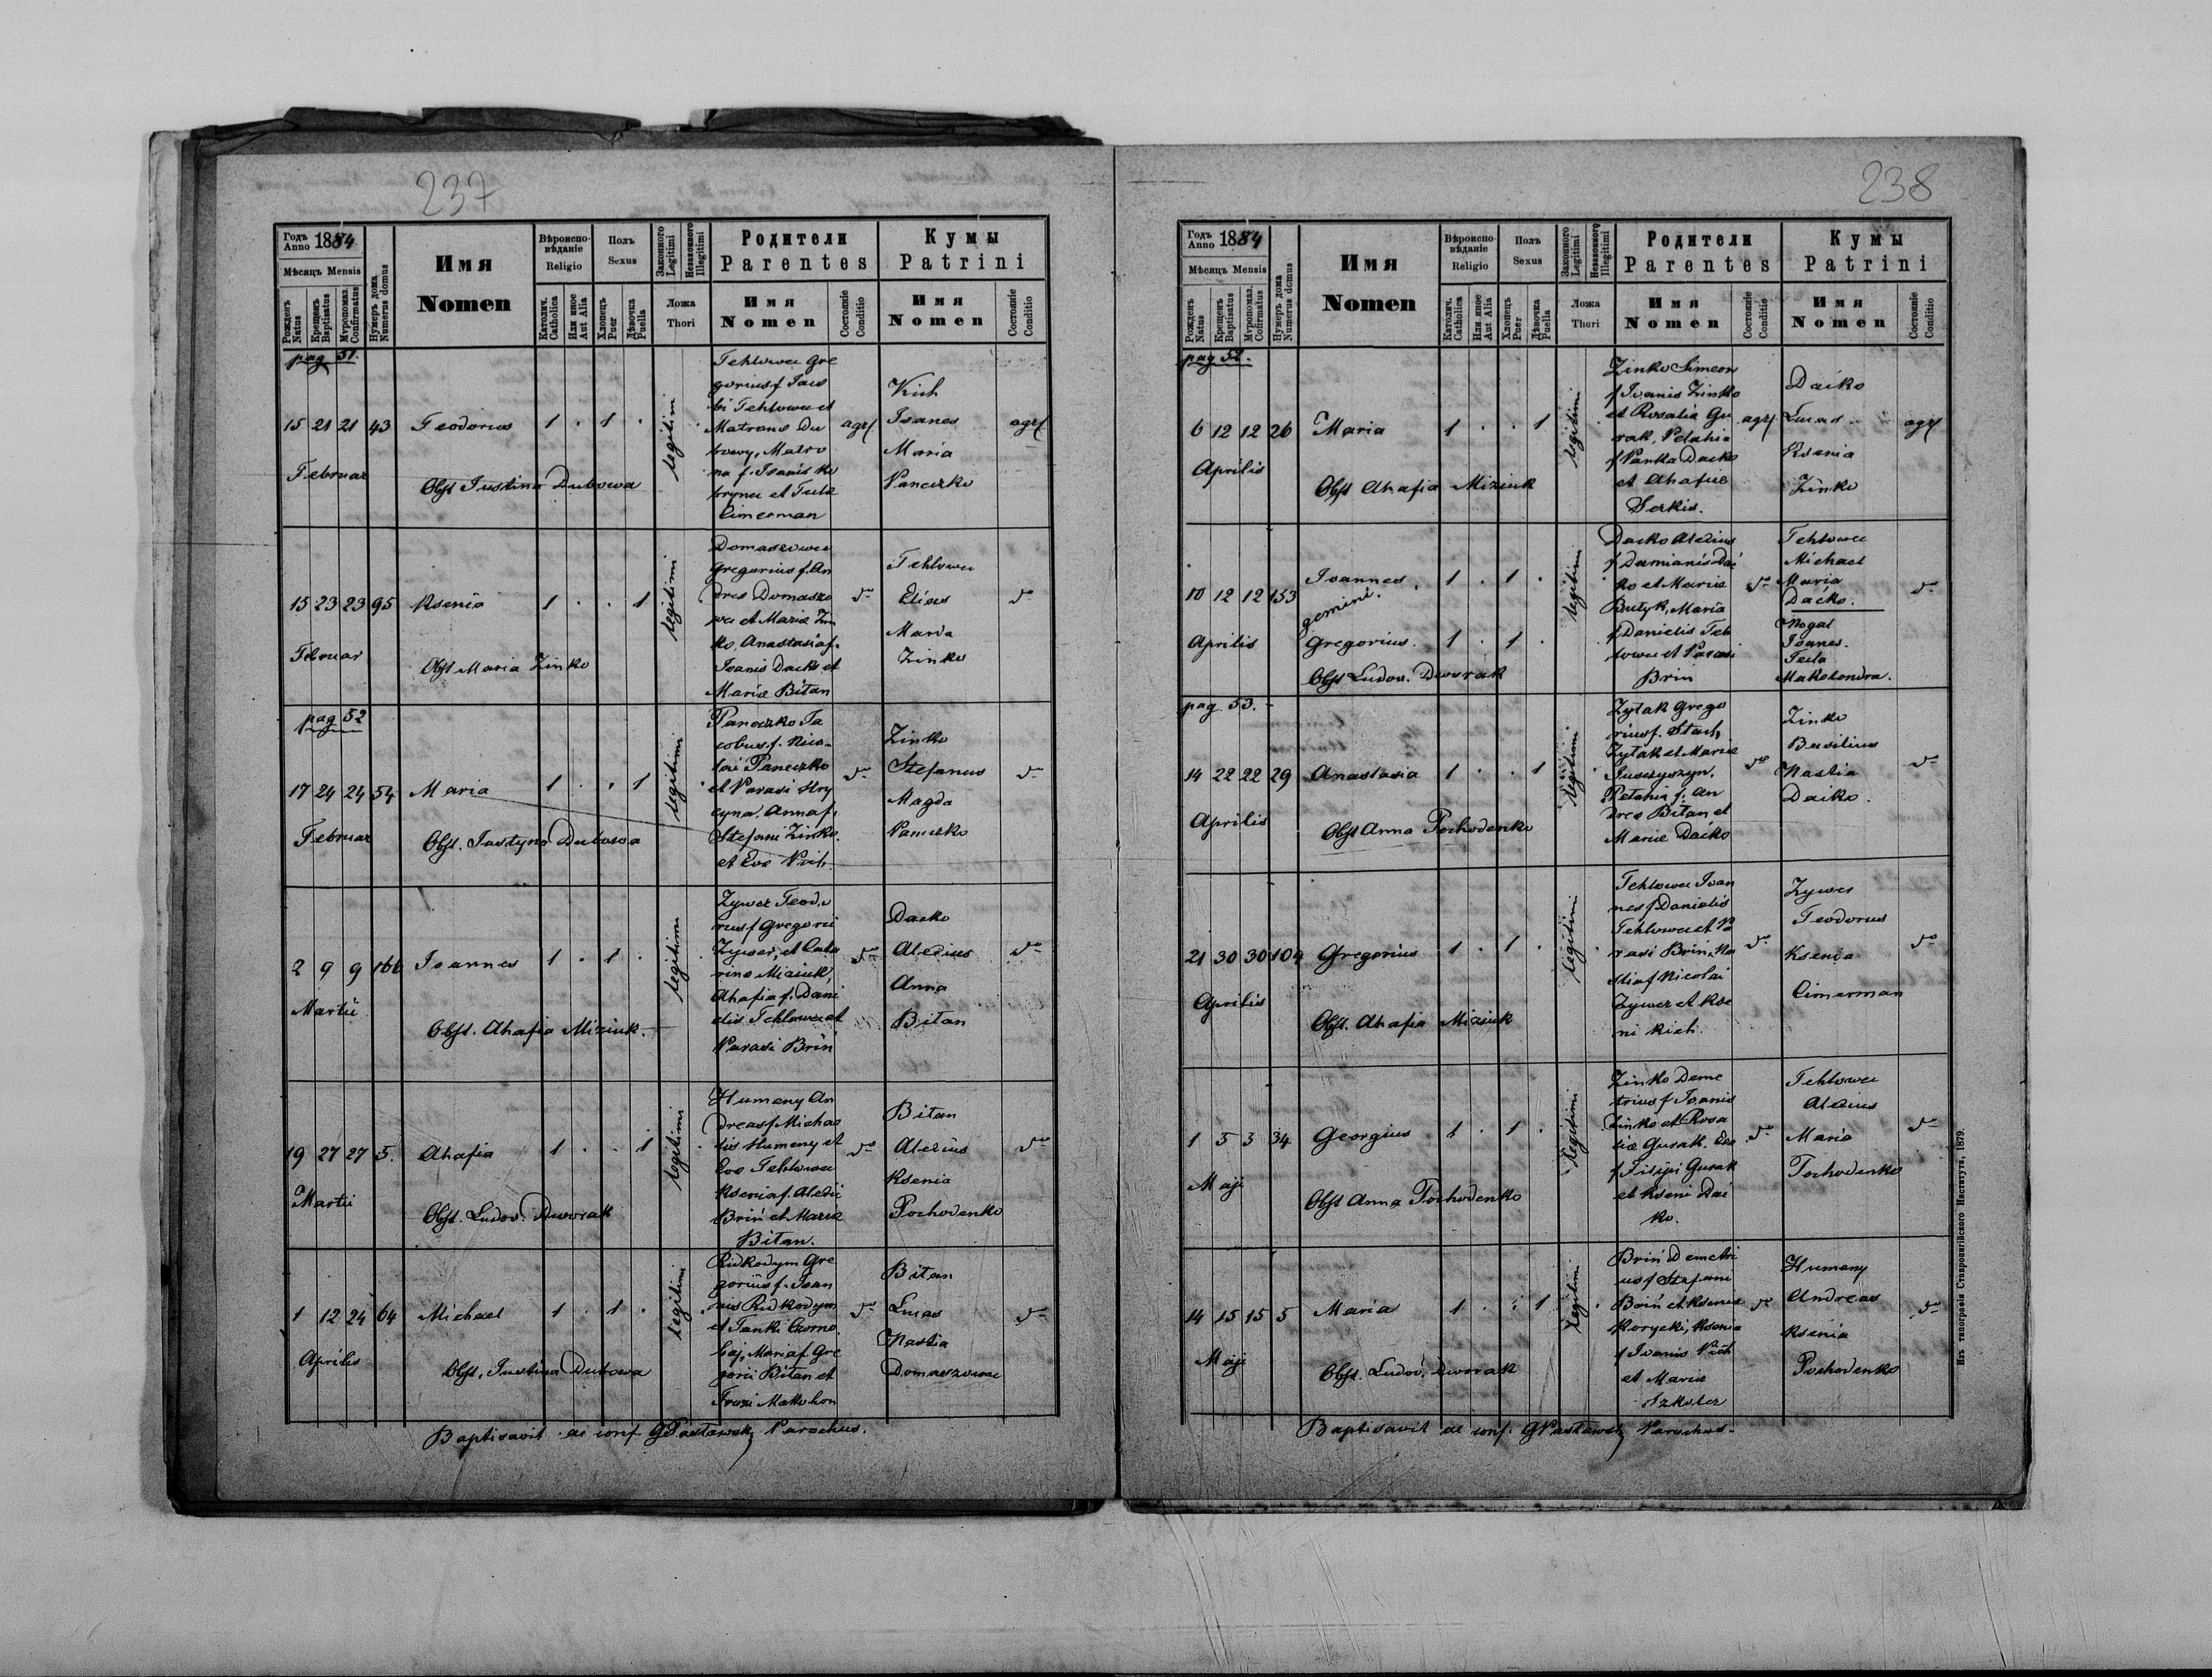 237
Годъ Anno 1884.
Мѣсяцъ Mensis
Рожденъ Natus
Крещенъ Baptisatus
Мѵропомаз. Confirmatus
Нумеръ дома Numerus domus
Имя
Nomen
Вѣроисповѣданіе
Religio
Католич. Catholica
Или иное Aut Alia
Полъ
Sexus
Хлопецъ Puer
Дѣвочка Puella
Законного Legitimi
Незаконного Illegitimi
Ложа
Thori
Родители
Parentes
Имя
Nomen
Состояніе Conditio
Кумы
Patrini
Имя
Nomen
Состояніе Conditio
pag 51.
15 21 21 43 Teodorus 1 . 1 .
Februar
Obst Justina Dubowa
legitimi
Tehlowec Gre
gorius f. Jaco
bi Tehlowec et
Matrona Du
bowy, Matro
na f. Ioanis Ko
bryna et Tecla
Cimerman
agr
Kich
Ioanes
Maria
Paneczko
agr
15 23 23 95 Ksenia 1 . . 1
Februar
Obst Maria Zinko
legitimi
Domaszowec
Gregorius f. An
drea Domaszo
wec et Maria Zin
ko, Anastasia f.
Ioanis Dacko et
Maria Bitan
do
Tehlowec
Elias
Maria
Zinko
do
pag 52
17 24 24 54 Maria 1 . . 1
Februar
Obst. Justyna Dubowa
legitimi
Paneczko Ja
cobus f. Nico
lai Paneczko
et Parasi Hry
cyna, Anna f.
Stefani Zinko
et Eva
do
Zinko
Stefanus
Magda
Paneczko
do
2 9 9 166 Ioannes 1 . 1 .
Martii
Obst. Ahafia Miziuk.
legitimi
Zywer Teodo
rus f Gregorii
Zywer, et Cata
rina Miziuk,
Ahafia f. Dani
elis Tehlowec et
Parasi Brin
do
Dacko
Alexius
Anna
Bitan
do
19 27 27 5. Ahafia 1 . . 1
Martii
Obst. Ludov. Dworak
legitimi
Humeny An
dreas f Micha
lis Humeny et
Eva Tehlowec
Ksenia f. Alexii
Briń et Maria
Bitan.
do
Bitan
Alexius
Ksenia
Pochodenko
do
1 12 24 64 Michael 1 . 1 .
Aprilis
Obst. Justina Dubowa
legitimi
Ridkodym Gre
gorius f. Ioan
nis Ridkodym
et Tanki Czorno
baj, Maria f. Gre
gorii Bitan et
Fruzi Makohon
do
Bitan
Lucas
Nastia
Domaszowec
do
Baptisavit ac conf. GPastawski Parochus.
238
Годъ Anno 1884
Мѣсяцъ Mensis
Рожденъ Natus
Крещенъ Baptisatus
Мѵропомаз. Cofirmatus
Нумеръ дома Numerus domus
Имя
Nomen
Вѣроисповѣданіе
Religio
Католич. Catholica
Или иное Aut Alia
Полъ
Sexus
Хлопецъ Puer
Дѣвочка Puella
Законного Legitimi
Незаконного Illegitimi
Ложа
Thori
Родители
Parentes
Имя
Nomen
Состояніе Conditio
Кумы
Patrini
Имя
Nomen
Состояніе Conditio
pag 52.
6 12 12 26 Maria 1 . . 1
Aprilis
Obst Ahafia Miziuk
legitimi
Zinko Simeon
f Ioanis Zinko
et Rosalia Gu
rak, Pelahia
f Panka Dacko
et Ahafia
Serkis.
agr
Dacko
Lucas
Ksenia
Zinko
agr
10 12 12 153 Ioannes 1 . 1 .
gemini.
Aprilis Gregorius. 1 . 1 .
Obst Ludov. Dworak
legitimi
Dacko Alexius
f Damianis Dac
ko et Maria
Butyk, Maria
f Danielis Teh
lowec et Parasi
Brin
do
Tehlowec
Michael
Maria
Dacko.
Nogal
Ioanes.
Tecla
Makolondra.
do
pag. 53.
14 22 22 29 Anastasia 1 . . 1
Aprilis
Obst Anna Pochodenko
legitimi
Zylak Grego
rius f. Stach
Zylak et Maria
Juszczyszyn.
Pelahia f. An
drea Bitan et
Maria Dacko
do
Zinko
Basilius
Nastia
Dacko.
do
21 30 30 104 Gregorius 1 . 1 .
Aprilis
Obst. Ahafia Miziuk
legitimi
Tehlowec Ioan
nes f Danielis
Tehlowec et Pa
rasi Brin, Na
stia f Nicolai
Zywer et Kse
ni Kich.
do
Zywer
Teodorus
Ksenia
Cimerman
do
1 3 3 34 Georgius 1 . 1 .
Maji
Obst Anna Pochodenko
legitimi
Zinko Deme
trius f Ioanis
Zinko et Rosa
lia Gurak. Eva
f Filipi Gurak
et Kseni Dac
ko.
do
Tehlowec
Alexius
Maria
Pochodenko
do
14 15 15 5 Maria 1 . . 1
Maji
Obst. Ludov. Dworak
legitimi
Briń Demetri
us f Stefani
Briń et Ksenia
Korycki, Ksenia
f Ioanis Kich
et Maria
Szkolar
do
Humeny
Andreas
Ksenia
Pochodenko
do
Baptisavit ac conf. GPastawski Parochus.
Изъ типографіи Ставропигійского Института, 1879.